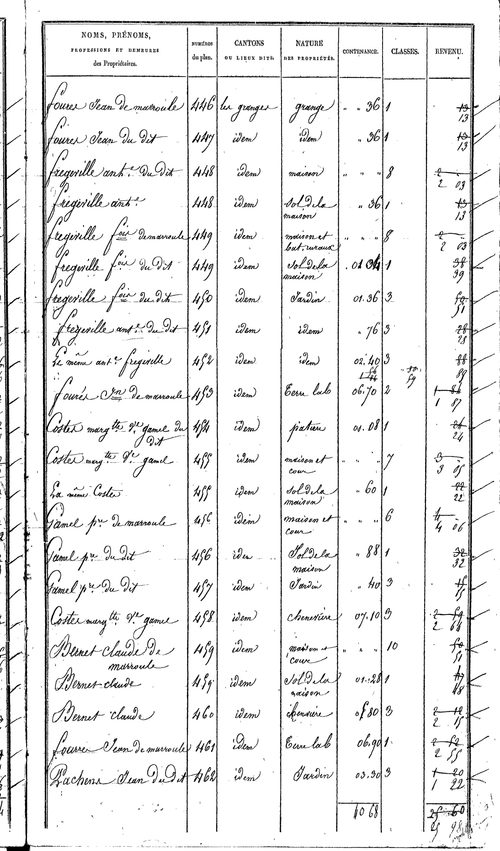 NOMS, PRÉNOMS,
PROFESSIONS ET DEMEURES
des Propriétaires.
NUMÉROS
du plan.
CANTONS
OU LIEUX DITS.
NATURE
DES PROPRIÉTÉS.
CONTENANCE.
CLASSES.
REVENU.
foures Jean de marroule 446 les granges grange " " 36 1 13
13
foures Jean du dit 447 idem idem " 36 1 13
13
fregeville ant.e du dit 448 idem maison " " " 8 2 "
2 03
fregeville ant.e 448 idem sol de la " 36 1 13
maison 13
fregeville fois demarroule 449 idem maison et " " " 8 2 "
bat. ruraux 2 03
fregeville fois du dit 449 idem sol de la 01 04 1 38
maison 39
fregeville fois du dit 450 idem Jardin 01.36 3 50
51
fregeville ant.e du dit 451 idem idem " 76 3 28
28
Le même ant.e fregeville 452 idem idem 02.40 3 88
89
fourés Jn de marroule 453 idem Terre lab 06.70 2 1 84
1 87
Costes marg.te v.e gamel du 454 idem pature 01.08 1 24
dit 24
Costes marg.te v.e gamel 455 idem maison et " " " 7 3 "
cour 3 05
La même Costes 455 idem sol de la " 60 1 22
maison 22
Gamel p.re de marroule 456 idem maison et " " " 6 4 "
cour 4 06
Gamel p.re du dit 456 idem Sol de la " 88 1 32
maison 32
Gamel p.re du dit 457 idem Jardin " 40 3 15
15
Costes marg.te v.e gamel 458 idem cheneviere 07.10 3 2 64
2 68
Bernet claude de 459 idem maison et " " " 10 50
marroule cour 51
Bernet claude 459 idem sol de la 01.28 1 47
maison 48
Bernet claude 460 idem cheneviere 05 80 3 2 12
2 15
foures Jean de marroule 461 idem Terre lab 06.90 1 2 52
2 55
Pachens Jean du dit 462 idem Jardin 03.30 3 1 20
1 22
40 68 25 60
25 98